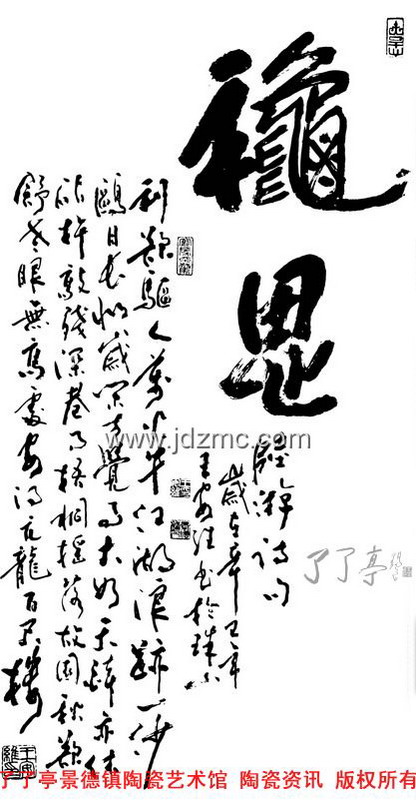 穐思
陸游詩句
歲在辛巳年
王安維書於珠山
利欲驅人萬火牛江湖浪跡一沙
鷗日長似歲閒方覺事大如天醉亦休
砧杵敲殘深巷月梧桐搖落故園秋欲
舒老眼無高處安得元龍百尺樓
www.jdzmc.com
了了亭
了了亭景德镇陶瓷艺术馆 陶瓷资讯 版权所有